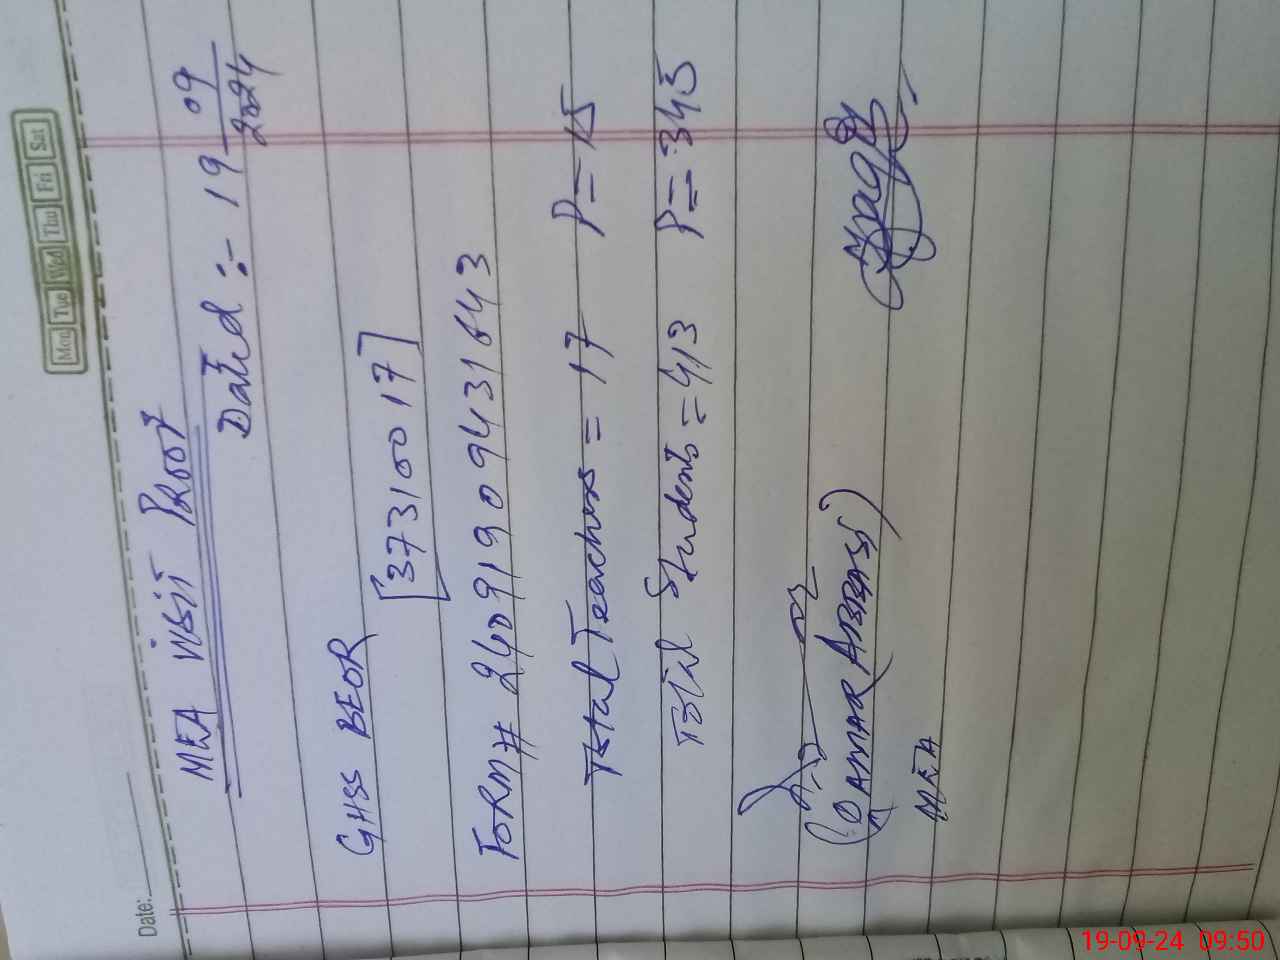 Mon Tue Wed Thu Fri Sat
Date:
MEA Visit Proof
Dated :- 19 09/2024
GHSS BEOR
[37310017]
Form # 2409190943 1643
Total Teachers = 17 P = 15
Total Students = 413 P = 345
(QAMAR ABBASS)
MEA
19-09-24 09:50